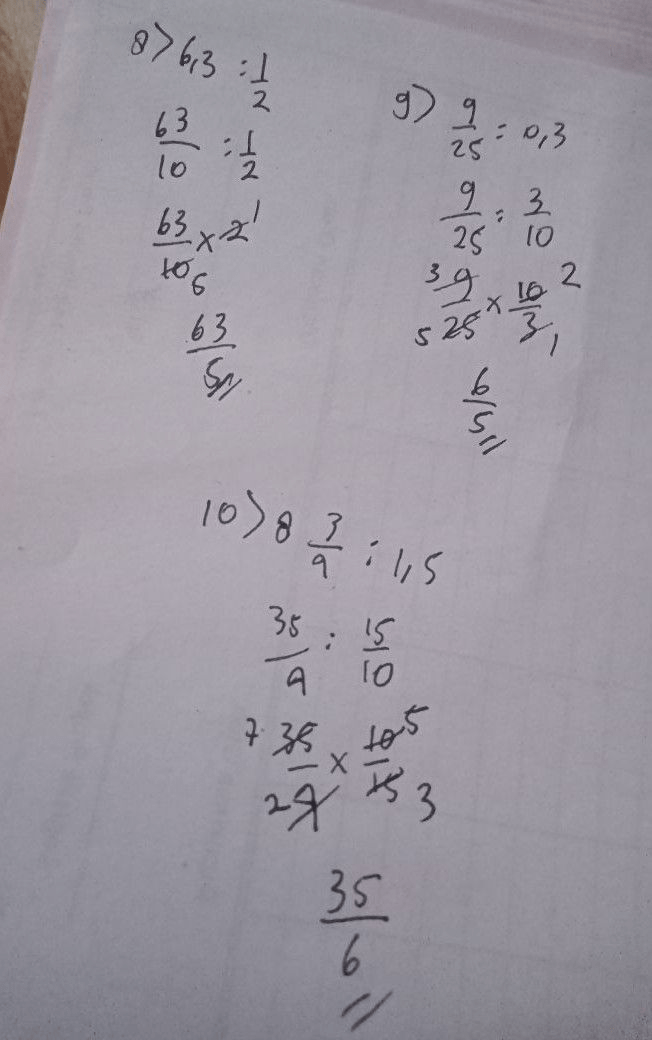 8) 6,3 : 1/2
63/10 : 1/2
63/10 5 × 2 1
63/5
9) 9/25 : 0,3
9/25 : 3/10
3 9/5 25 × 10 2/3 1
6/5
10) 8 3/4 : 1,5
35/4 : 15/10
7 35/2 4 × 10 5/15 3
35/6